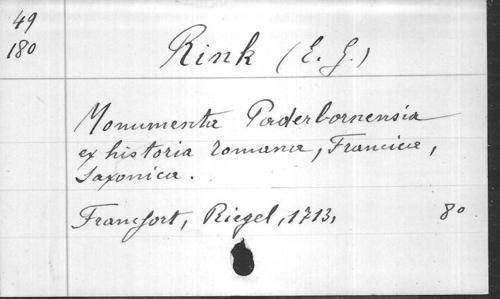 49
180
Rink (E. G.)
Monumenta Paderbornensia
ex historia romana, Francica,
Saxonica.
Francfort, Riegel, 1713, 8º